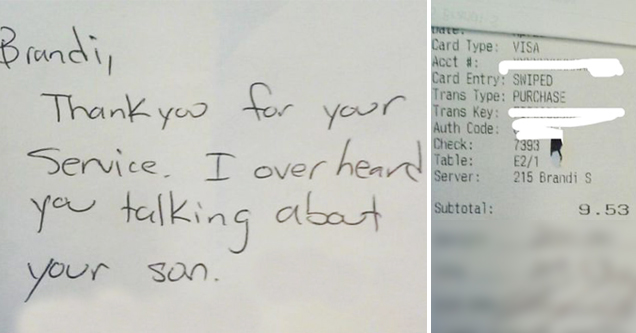 Brandi,
Thank you for your
Service. I overheard
you talking about
your son.
Date:
Card Type: VISA
Acct #:
Card Entry: SWIPED
Trans Type: PURCHASE
Trans Key:
Auth Code:
Check: 7393
Table: E2/1
Server: 215 Brandi S
Subtotal: 9.53